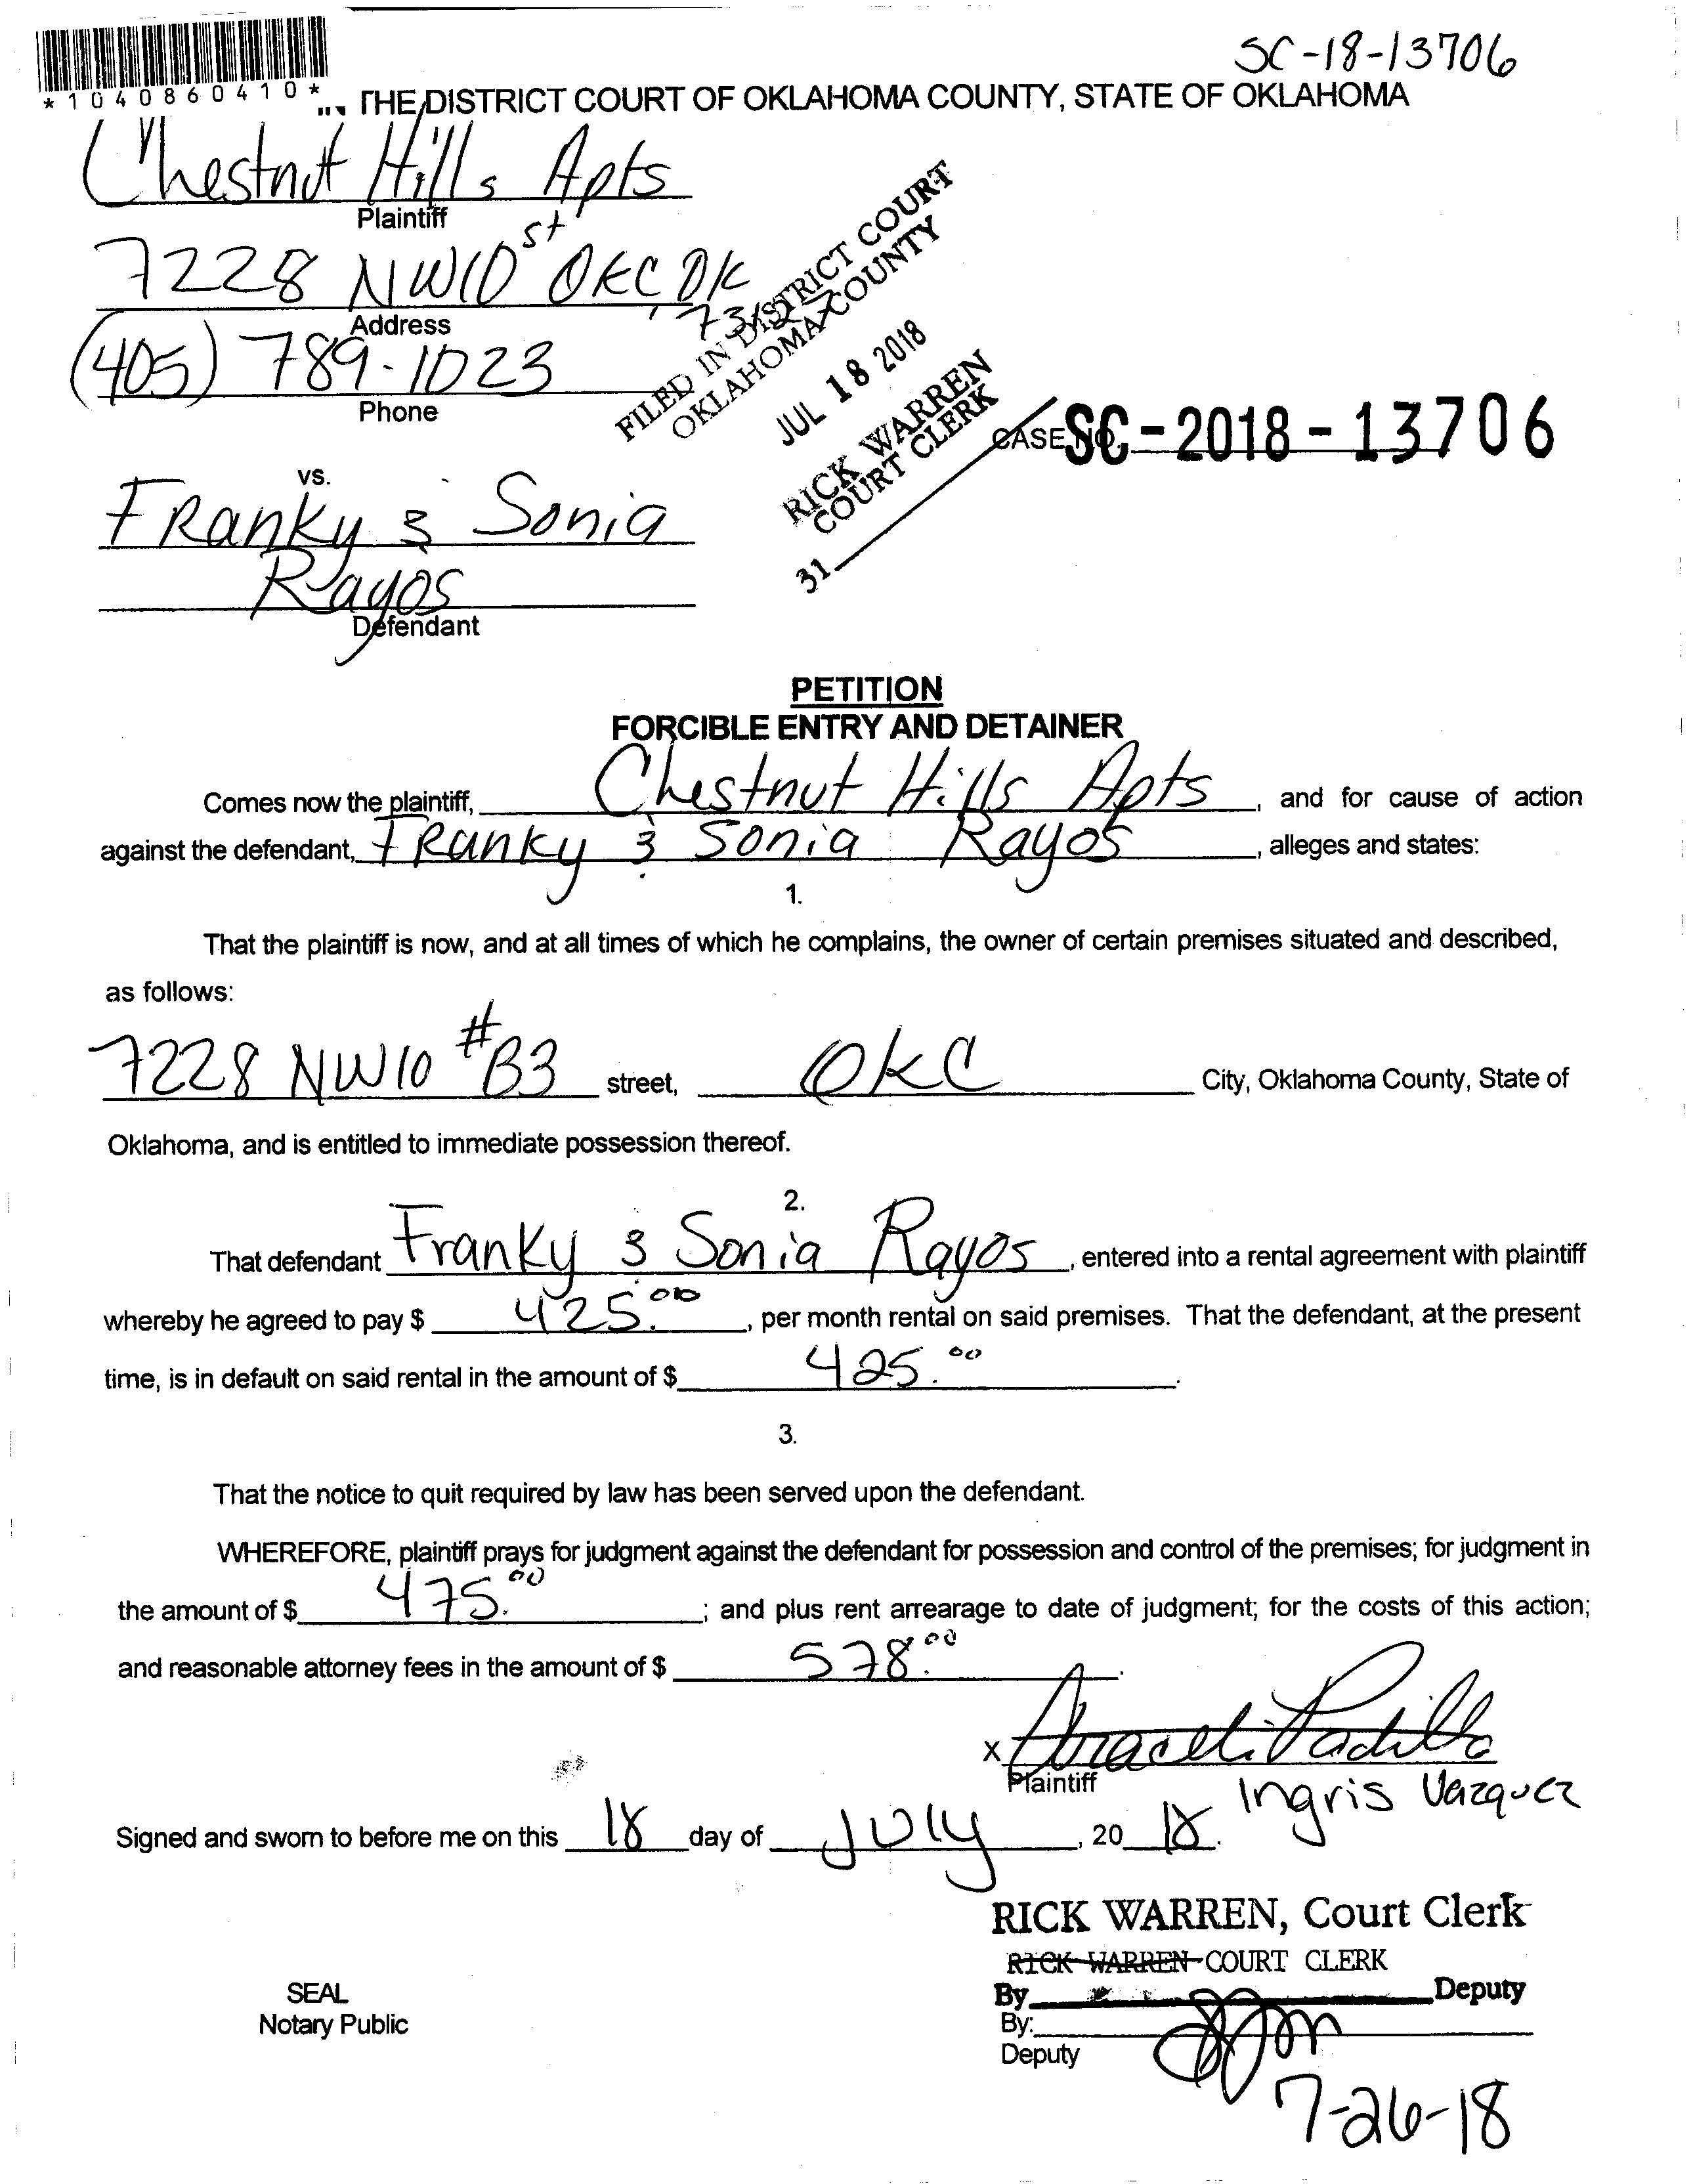 SC-18-13706
*1040860410*
THE DISTRICT COURT OF OKLAHOMA COUNTY, STATE OF OKLAHOMA
Chestnut Hills Apts
Plaintiff
7228 NW10 st OKC OK
73127
Address
(405) 789-1023
Phone
FILED IN DISTRICT COURT
OKLAHOMA COUNTY
JUL 18 2018
RICK WARREN
COURT CLERK
31
CASE NO. SC-2018-13706
vs.
Franky & Sonia
Rayos
Defendant
PETITION
FORCIBLE ENTRY AND DETAINER
Comes now the plaintiff, Chestnut Hills Apts, and for cause of action
against the defendant, Franky & Sonia Rayos, alleges and states:
1.
That the plaintiff is now, and at all times of which he complains, the owner of certain premises situated and described,
as follows:
7228 NW10 #B3 street, OKC City, Oklahoma County, State of
Oklahoma, and is entitled to immediate possession thereof.
2.
That defendant Franky & Sonia Rayos, entered into a rental agreement with plaintiff
whereby he agreed to pay $ 425.00, per month rental on said premises. That the defendant, at the present
time, is in default on said rental in the amount of $ 425.00.
3.
That the notice to quit required by law has been served upon the defendant.
WHEREFORE, plaintiff prays for judgment against the defendant for possession and control of the premises; for judgment in
the amount of $ 475.00; and plus rent arrearage to date of judgment; for the costs of this action;
and reasonable attorney fees in the amount of $ 578.00.
x Araceli Padilla
Plaintiff
Ingris Vazquez
Signed and sworn to before me on this 18 day of July, 20 18.
RICK WARREN, Court Clerk
RICK WARREN COURT CLERK
By Deputy
SEAL
Notary Public
By:
Deputy
7-26-18